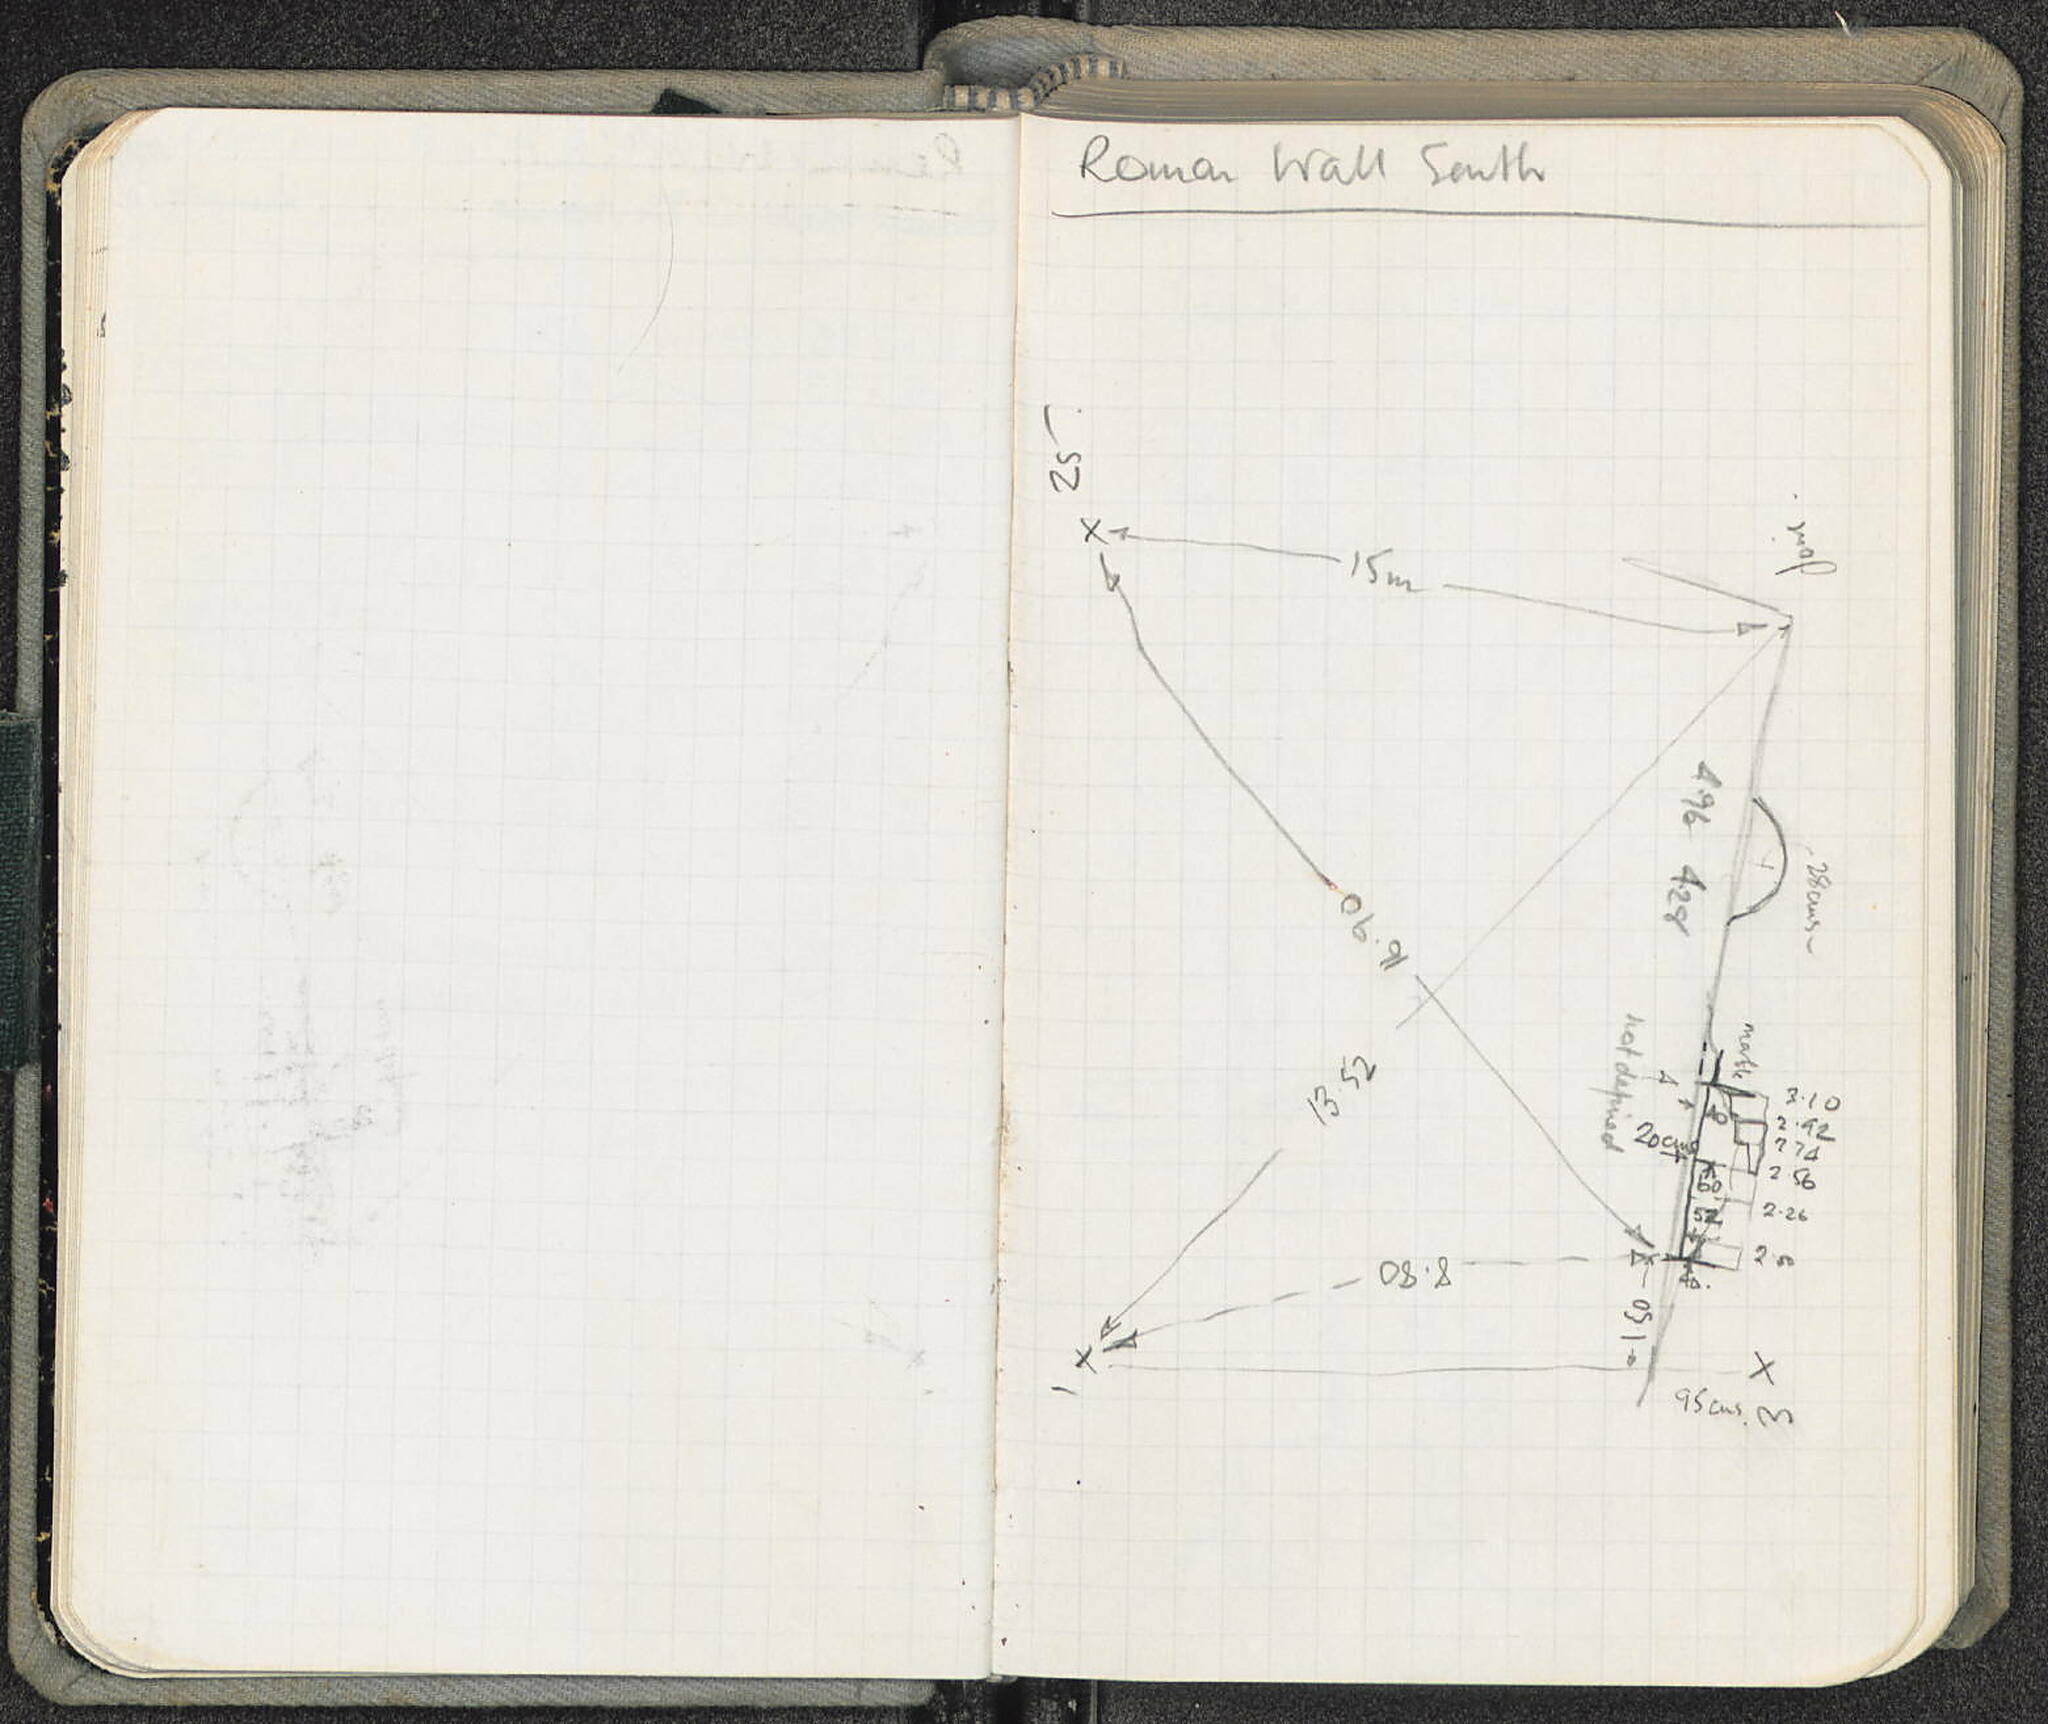 Roman Wall South
25
15m
4.96 4.28
28cms
16.90
13.52
not defined
2.10
2.92
2.74
2.56
2.26
2.00
20cms
60
52
8.80
1.50
1
95cms. 3